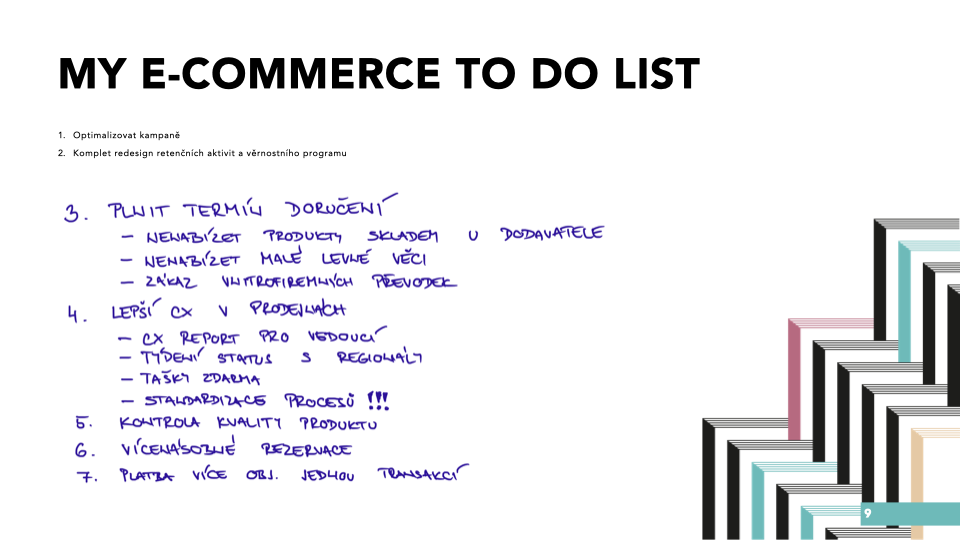 MY E-COMMERCE TO DO LIST
1. Optimalizovat kampaně
2. Komplet redesign retenčních aktivit a věrnostního programu
3. PLNIT TERMÍN DORUČENÍ
– NENABÍZET PRODUKTY SKLADEM U DODAVATELE
– NENABÍZET MALÉ LEVNÉ VĚCI
– ZÁKAZ VNITROFIREMNÍCH PŘEVODEK
4. LEPŠÍ CX V PRODEJNÁCH
– CX REPORT PRO VEDOUCÍ
– TÝDENÍ STATUS S REGIONÁLY
– TAŠKY ZDARMA
– STANDARDIZACE PROCESŮ !!!
5. KONTROLA KVALITY PRODUKTU
6. VÍCENÁSOBNÉ REZERVACE
7. PLATBA VÍCE OBJ. JEDNOU TRANSAKCÍ
9